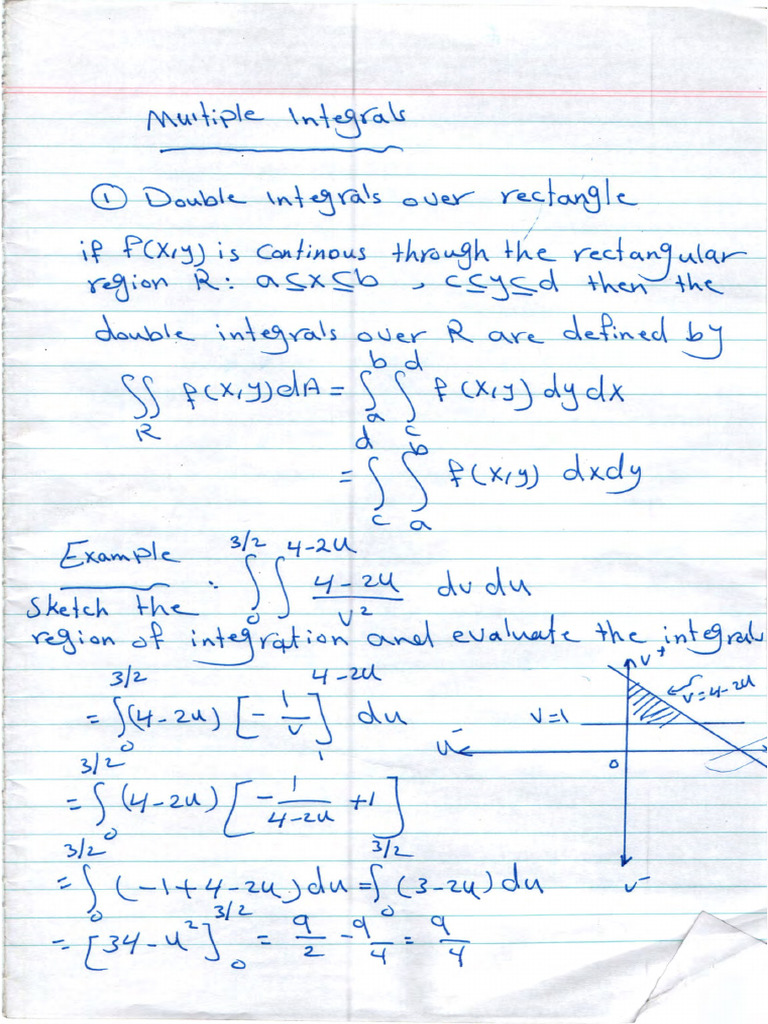 Multiple Integrals
① Double Integrals over rectangle
if f(x,y) is Continous through the rectangular
region R: a≤x≤b , c≤y≤d then the
double integrals over R are defined by
∬_R f(x,y)dA = ∫_a^b ∫_c^d f(x,y) dy dx
= ∫_c^d ∫_a^b f(x,y) dxdy
Example : ∫_0^{3/2} ∫^{4-2u} (4-2u)/v² dv du
Sketch the
region of integration and evaluate the integral
= ∫_0^{3/2} (4-2u) [-1/v]_1^{4-2u} du
v+
v=4-2u
v=1
u-
0
v-
= ∫_0^{3/2} (4-2u) [-1/(4-2u) +1]
= ∫_0^{3/2} (-1+4-2u) du = ∫_0^{3/2} (3-2u) du
= [3u-u²]_0^{3/2} = 9/2 - 9/4 = 9/4